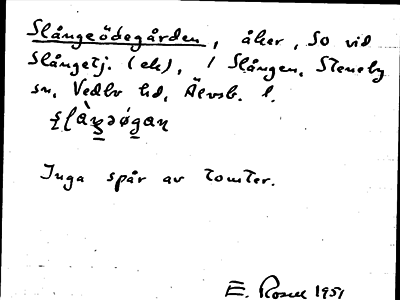 Slångeödegården, åker, SO vid
Slångetj. (ek), / Slången, Steneby
sn, Vedbo hd, Älvsb. l.
Inga spår av tomter.
E. Rosell 1951